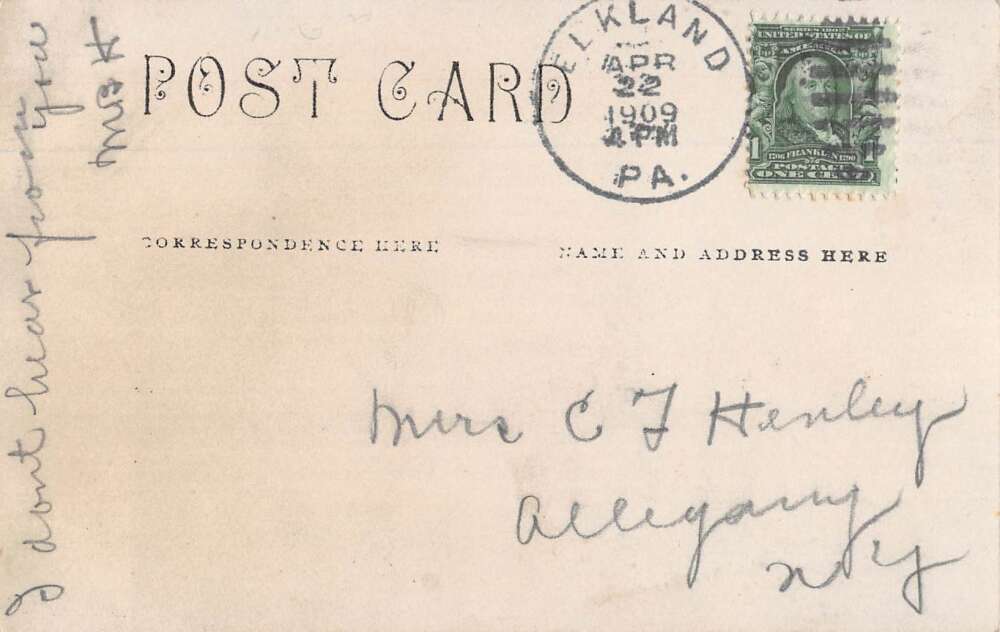 POST CARD
ELKLAND
APR
22
1909
4 PM
PA.
SERIES 1902
UNITED STATES OF
AMERICA
1 1706 FRANKLIN 1790 1
POSTAGE
ONE CENT
CORRESPONDENCE HERE
NAME AND ADDRESS HERE
I dont hear from you
Mrs H
Mrs C F Henley
Allegany
N Y